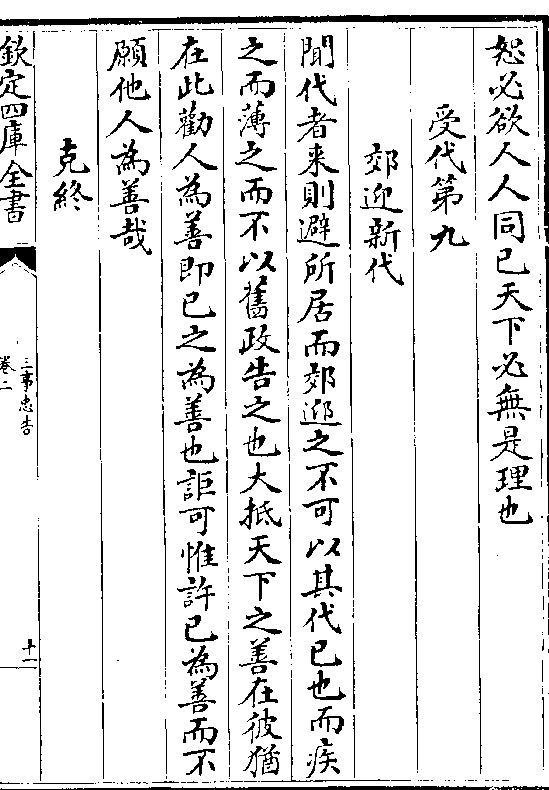 恕必欲人人同已天下必無是理也
受代第九
郊迎新代
聞代者来則避所居而郊迎之不可以其代已也而疾
之而薄之而不以舊政告之也大抵天下之善在彼猶
在此勸人為善即已之為善也詎可惟許已為善而不
願他人為善哉
克終
欽定四庫全書
三事忠告
卷二
十一